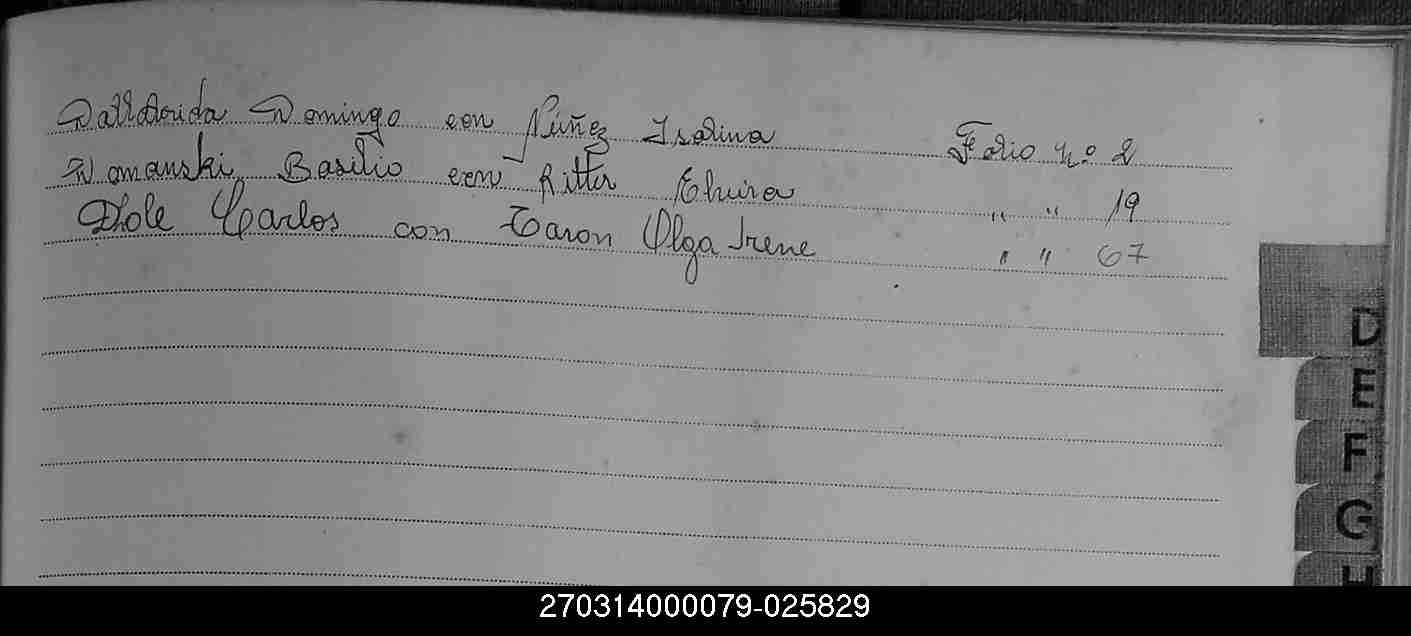 Dalldorida Domingo con Núñez Isolina Folio Nº 2
Domanski Basilio con Ritter Elvira " " 19
Dole Carlos con Caron Olga Irene " " 67
D
E
F
G
H
270314000079-025829